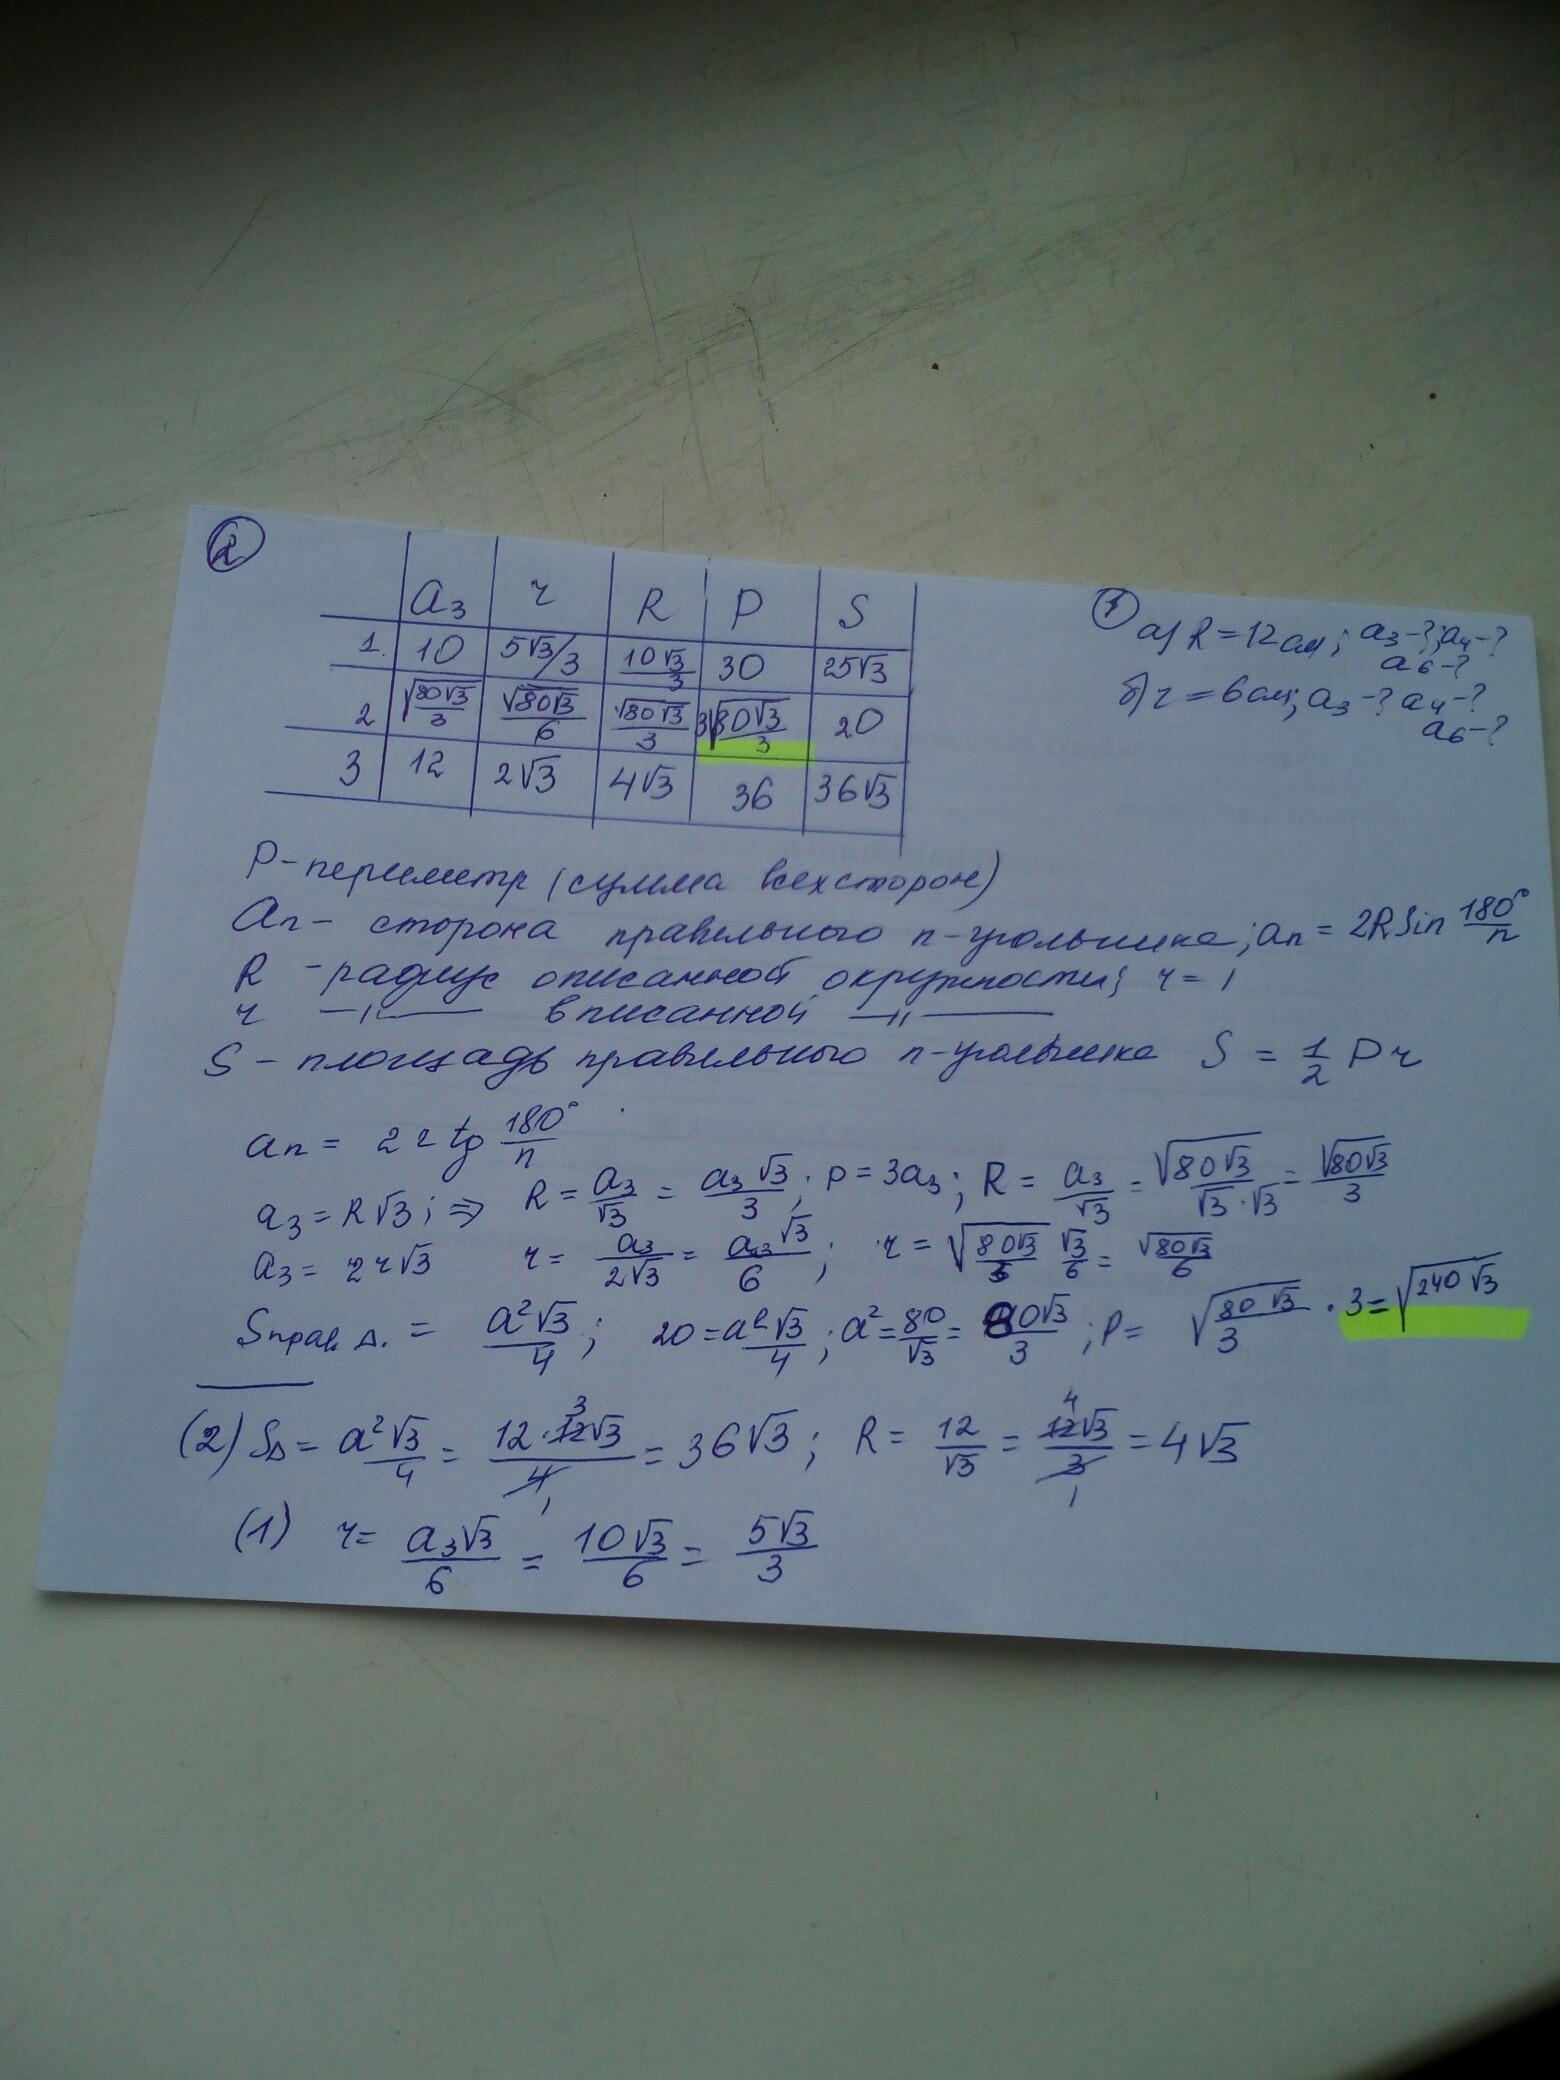 ②
a₃ r R P S
1. 10 5√3/3 10√3/3 30 25√3
2 √(80√3/3) √(80√3)/6 √(80√3)/3 3√(80√3/3) 20
3 12 2√3 4√3 36 36√3
① а) R = 12 см; a₃ - ?; a₄ - ?
a₆ - ?
б) r = 6 см; a₃ - ? a₄ - ?
a₆ - ?
P - периметр (сумма всех сторон)
aₙ - сторона правильного n-угольника; aₙ = 2R Sin 180°/n
R - радиус описанной окружности; r =
r —〃— вписанной —〃—
S - площадь правильного n-угольника S = 1/2 Pr
aₙ = 2r tg 180°/n
a₃ = R√3; ⇒ R = a₃/√3 = a₃√3/3; P = 3a₃; R = a₃/√3 = √(80√3)/(√3·√3) = √(80√3)/3
a₃ = 2r√3 r = a₃/2√3 = a₃√3/6; r = √(80√3/3) √3/6 = √(80√3)/6
Sправ Δ. = a²√3/4; 20 = a²√3/4; a² = 80/√3 = 80√3/3; P = √(80√3/3) · 3 = √(240√3)
(2) SΔ = a²√3/4 = 12·12√3/4 = 36√3; R = 12/√3 = 12√3/3 = 4√3
(1) r = a₃√3/6 = 10√3/6 = 5√3/3